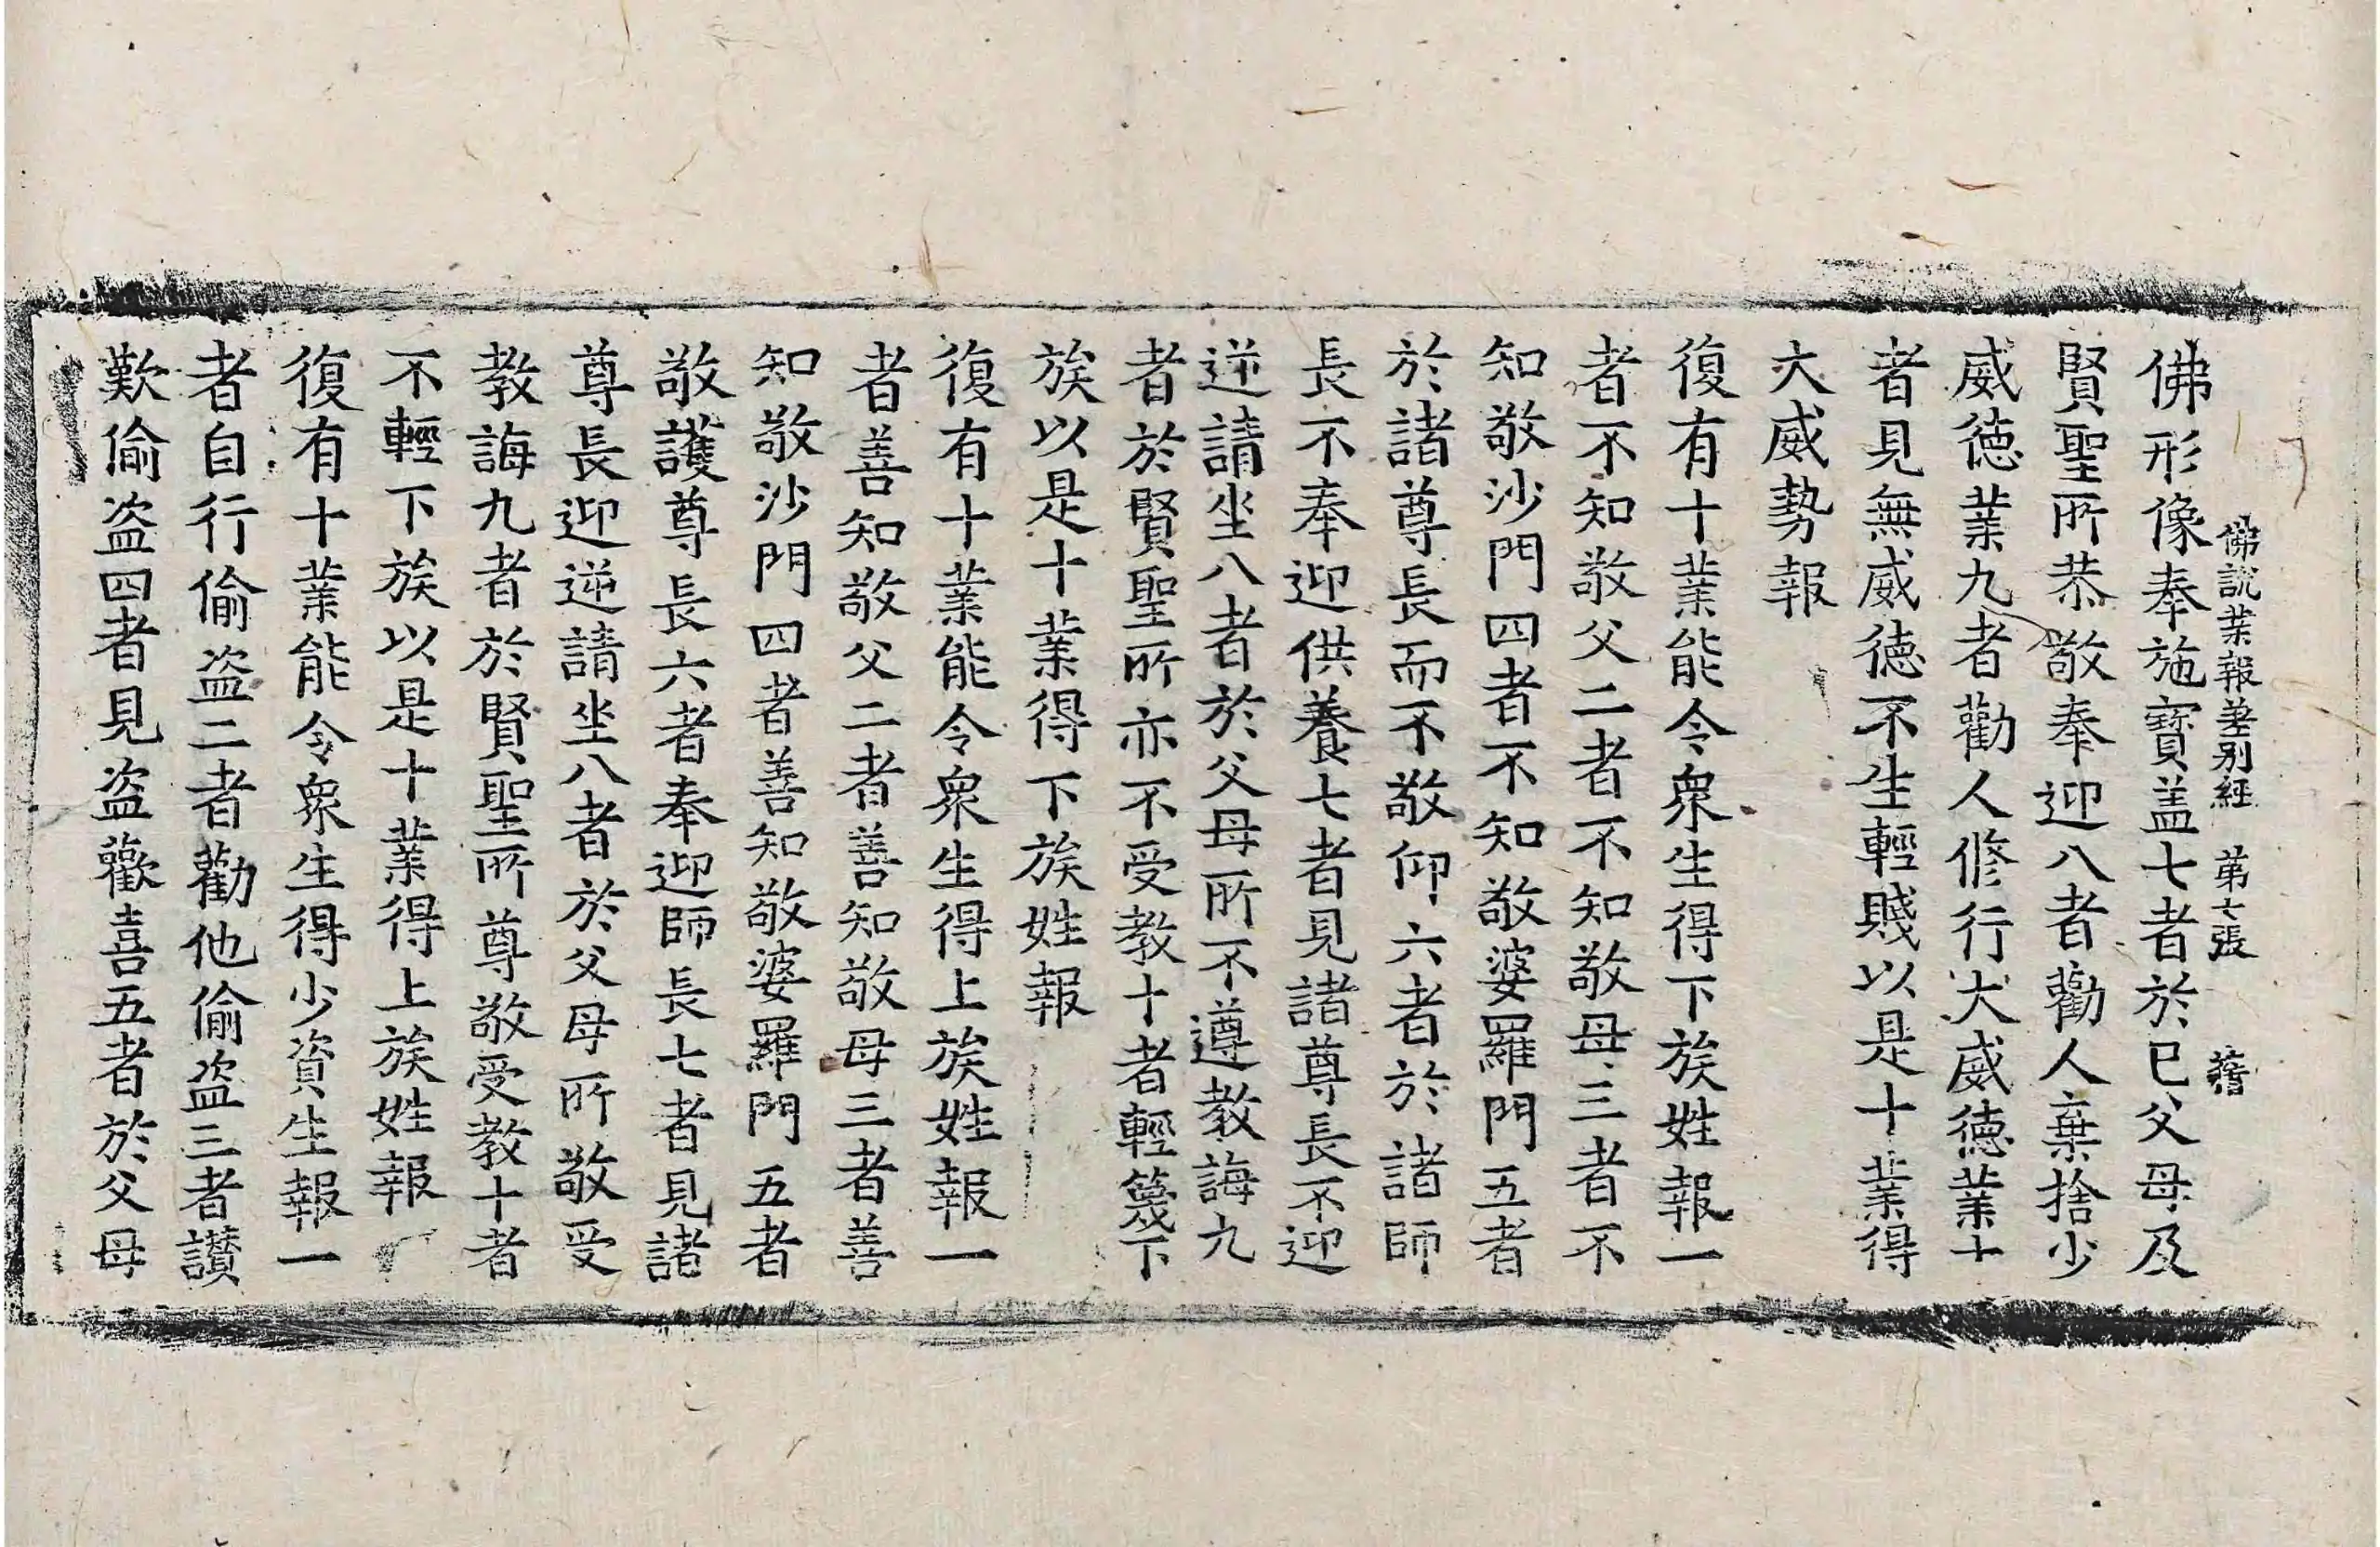 佛說業報差別經 第七張
佛形像奉施寶盖七者於已父母及
賢聖所恭敬奉迎八者勸人棄捨少
威德業九者勸人修行大威德業十
者見無威德不生輕賤以是十業得
大威勢報
復有十業能令衆生得下族姓報一
者不知敬父二者不知敬母三者不
知敬沙門四者不知敬婆羅門五者
於諸尊長而不敬仰六者於諸師
長不奉迎供養七者見諸尊長不迎
逆請坐八者於父母所不遵教誨九
者於賢聖所亦不受教十者輕篾下
族以是十業得下族姓報
復有十業能令衆生得上族姓報一
者善知敬父二者善知敬母三者善
知敬沙門四者善知敬婆羅門五者
敬護尊長六者奉迎師長七者見諸
尊長迎逆請坐八者於父母所敬受
教誨九者於賢聖所尊敬受教十者
不輕下族以是十業得上族姓報
復有十業能令衆生得少資生報一
者自行偷盗二者勸他偷盗三者讃
歎偷盗四者見盗歡喜五者於父母